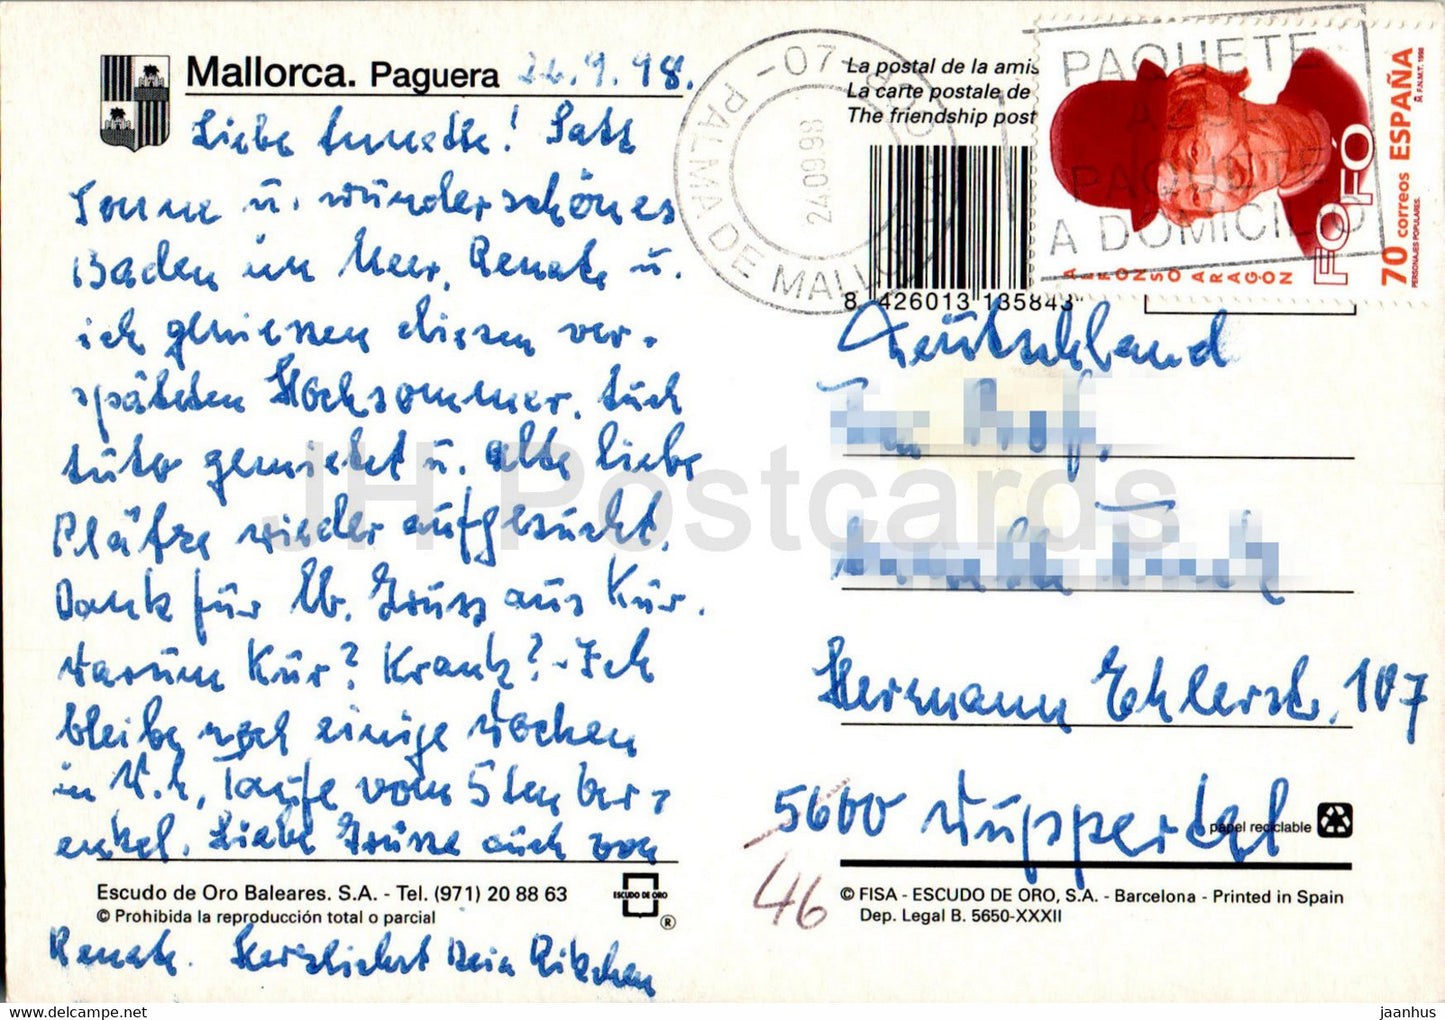 Mallorca. Paguera 22.9.98.
Liebe Annette! Satt
Sonne u. wunderschönes
Baden im Meer, Renate u.
ich geniessen diesen ver-
späteten Hochsommer. Auch
Auto gemietet u. alte liebe
Plätze wieder aufgesucht.
Dank für lb. Gruss aus Kur.
Warum Kur? Krank? - Ich
bleibe noch einige Wochen
in Taufe vom 5ten Ber-
enkel. Liebe Grüsse auch von
Renate. Herzlichst Dein
Escudo de Oro Baleares. S.A. - Tel. (971) 20 88 63
© Prohibida la reproducción total o parcial
ESCUDO DE ORO
®
La postal de la amis
La carte postale de
The friendship post
8 426013 135843
PALMA DE MALLORCA
-07-
24.09.98
PAQUETE
AZUL
PAQUETE
A DOMICILIO
ALFONSO ARAGÓN
FOFÓ
70 correos ESPAÑA
PERSONAJES POPULARES.
R. F.N.M.T. 1998
Deutschland
Prof.
Hermann Ehlerstr. 107
5600 Wuppertal
46
papel reciclable
© FISA - ESCUDO DE ORO, S.A. - Barcelona - Printed in Spain
Dep. Legal B. 5650-XXXII
JH Postcards
www.delcampe.net
jaanhus